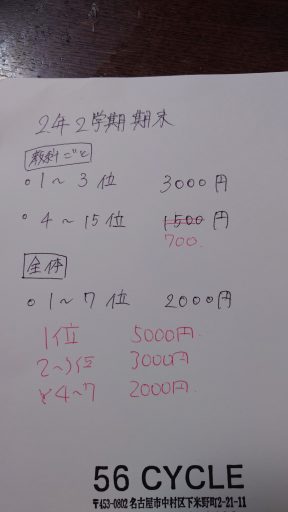 2年2学期期末
教科ごと
○1〜3位 3000円
○4〜15位 1500円
700.
全体
○1〜7位 2000円
1位 5000円.
2〜3位 3000円
4〜7 2000円.
56 CYCLE
〒453-0802 名古屋市中村区下米野町2-21-11